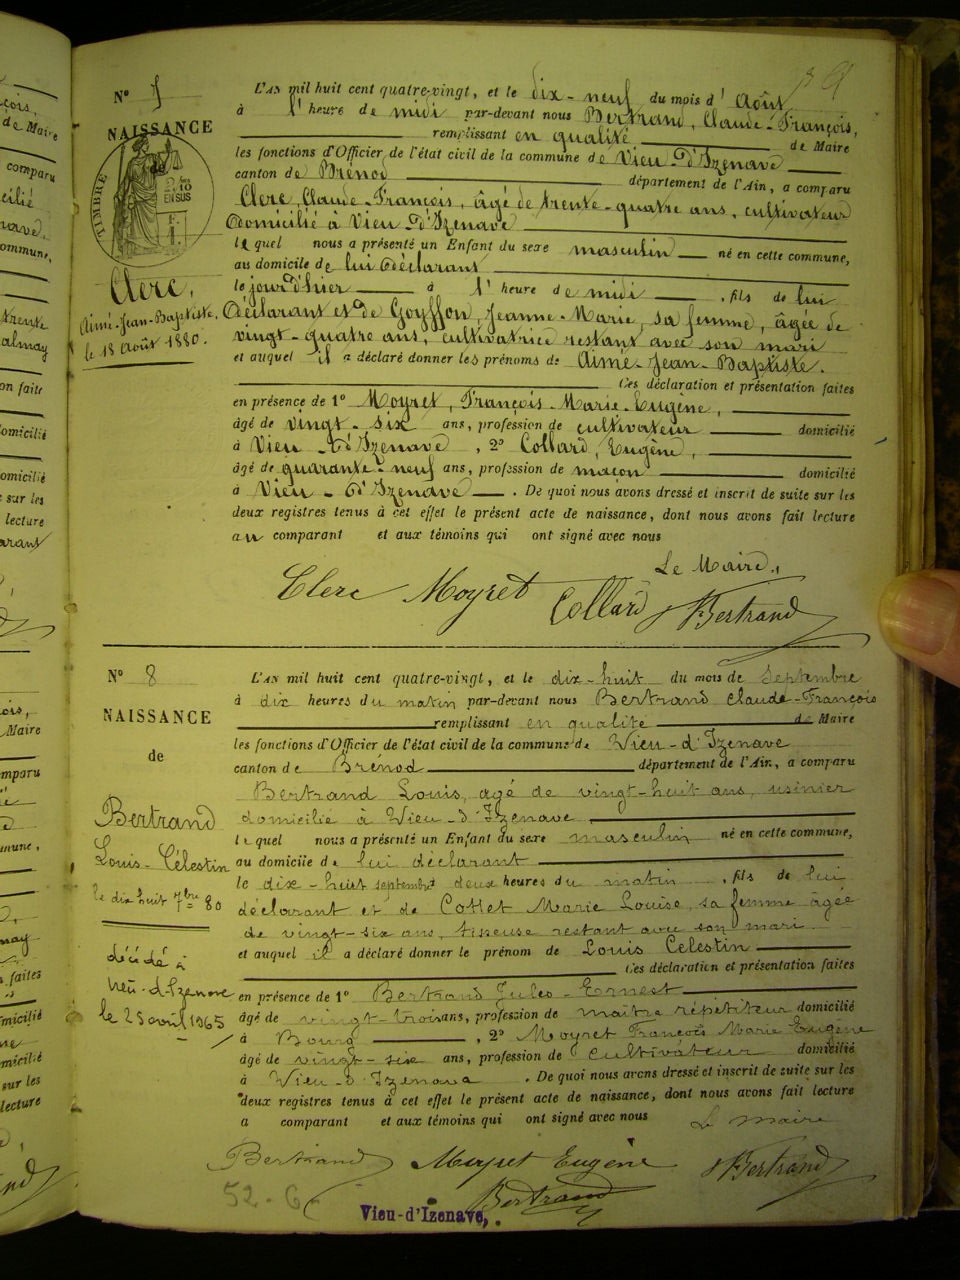 N° 7
NAISSANCE
TIMBRE
2/10
EN SUS
Clerc,
Aimé-Jean-Baptiste.
le 18 Août 1880.
L'AN mil huit cent quatre-vingt, et le dix-neuf du mois d' Août
à l'heure de midi par-devant nous Bertrand, Claude-François,
remplissant en qualité de Maire
les fonctions d'Officier de l'état civil de la commune de Vieu-d'Izenave
canton de Brénod département de l'Ain, a comparu
Clerc, Claude-François, âgé de trente-quatre ans, cultivateur
domicilié à Vieu-d'Izenave
lequel nous a présenté un Enfant du sexe masculin né en cette commune,
au domicile de lui déclarant
le jour d'hier à l'heure de midi, fils de lui
déclarant et de Goyffon, Jeanne-Marie, sa femme, âgée de
vingt-quatre ans, cultivatrice restant avec son mari
et auquel il a déclaré donner les prénoms de Aimé-Jean-Baptiste.
Ces déclaration et présentation faites
en présence de 1° Moyret, François-Marie-Eugène,
âgé de vingt-six ans, profession de cultivateur domicilié
à Vieu-d'Izenave, 2° Collard, Eugène,
âgé de quarante-neuf ans, profession de maçon domicilié
à Vieu-d'Izenave. De quoi nous avons dressé et inscrit de suite sur les
deux registres tenus à cet effet le présent acte de naissance, dont nous avons fait lecture
au comparant et aux témoins qui ont signé avec nous
Le Maire,
Clerc Moyret Collard Bertrand
N° 8
NAISSANCE
de
Bertrand
Louis-Célestin
le dix huit 7bre 80
décédé à
Vieu-d'Izenave
le 25 avril 1965
L'AN mil huit cent quatre-vingt, et le dix-huit du mois de Septembre
à dix heures du matin par-devant nous Bertrand Claude-François
remplissant en qualité de Maire
les fonctions d'Officier de l'état civil de la commune de Vieu-d'Izenave
canton de Brénod département de l'Ain, a comparu
Bertrand Louis, agé de vingt-huit ans, usinier
domicilié à Vieu-d'Izenave,
lequel nous a présenté un Enfant du sexe masculin né en cette commune,
au domicile de lui déclarant
le dix-huit septembre deux heures du matin, fils de lui
déclarant et de Cottet Marie Louise, sa femme âgée
de vingt-six ans, tisseuse restant avec son mari
et auquel il a déclaré donner le prénom de Louis Celestin
Ces déclaration et présentation faites
en présence de 1° Bertrand Jules-Ernest
âgé de vingt-trois ans, profession de maître répétiteur domicilié
à Bourg, 2° Moyret François Marie Eugène
âgé de vingt-six ans, profession de cultivateur domicilié
à Vieu-d'Izenave. De quoi nous avons dressé et inscrit de suite sur les
deux registres tenus à cet effet le présent acte de naissance, dont nous avons fait lecture
a comparant et aux témoins qui ont signé avec nous
Le maire
Bertrand Moyret Eugène Bertrand
Bertrand
Vieu-d'Izenave,